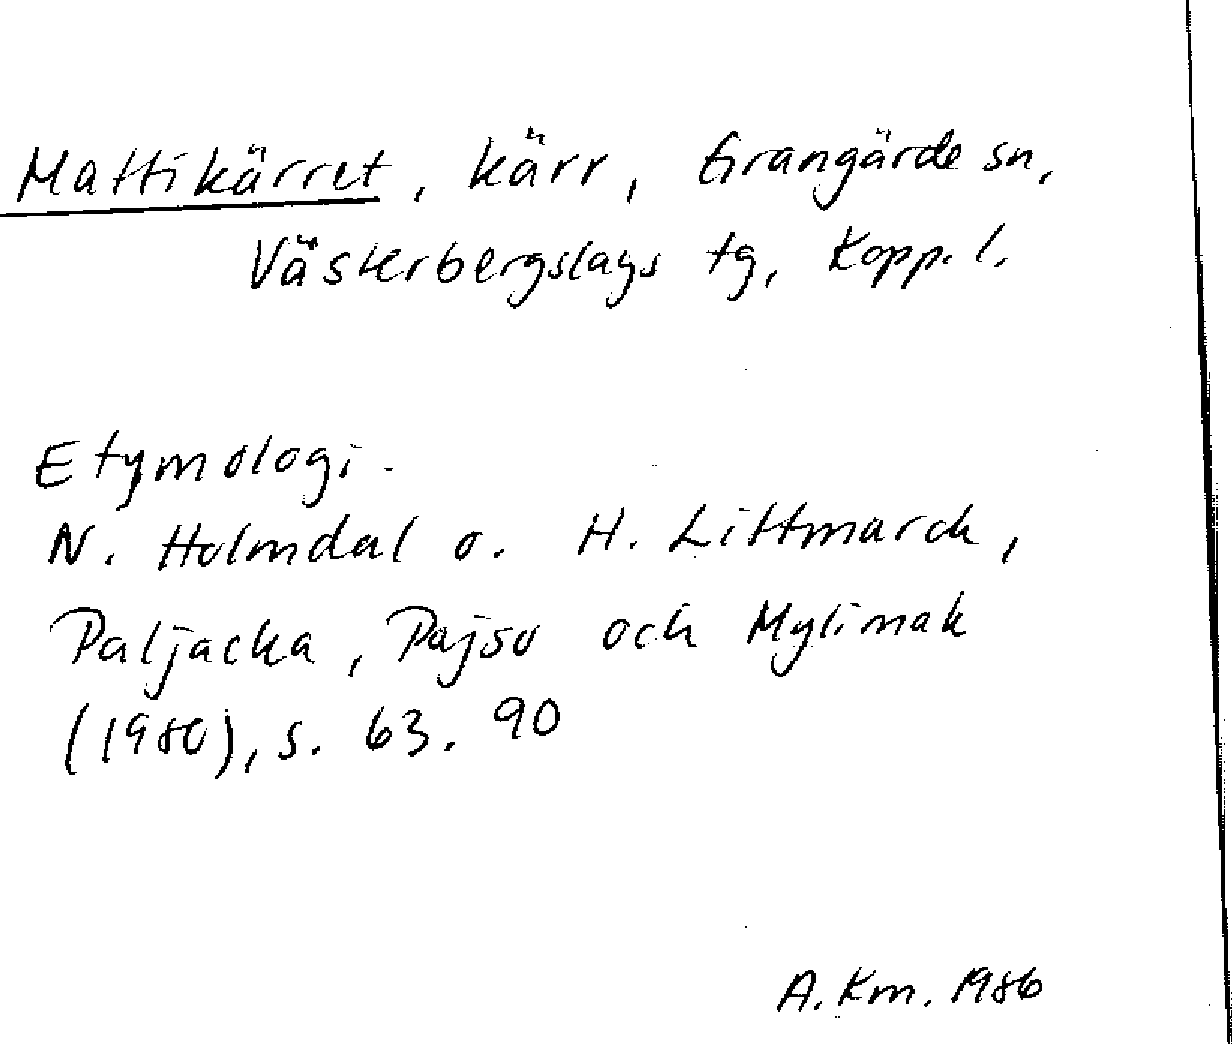 Mattikärret, kärr, Grangärde sn,
Västerbergslags tg, Kopp. l.
Etymologi.
N. Holmdal o. H. Littmarck,
Paljacka, Pajso och Mylimak
(1980), s. 63. 90
A. Km. 1986